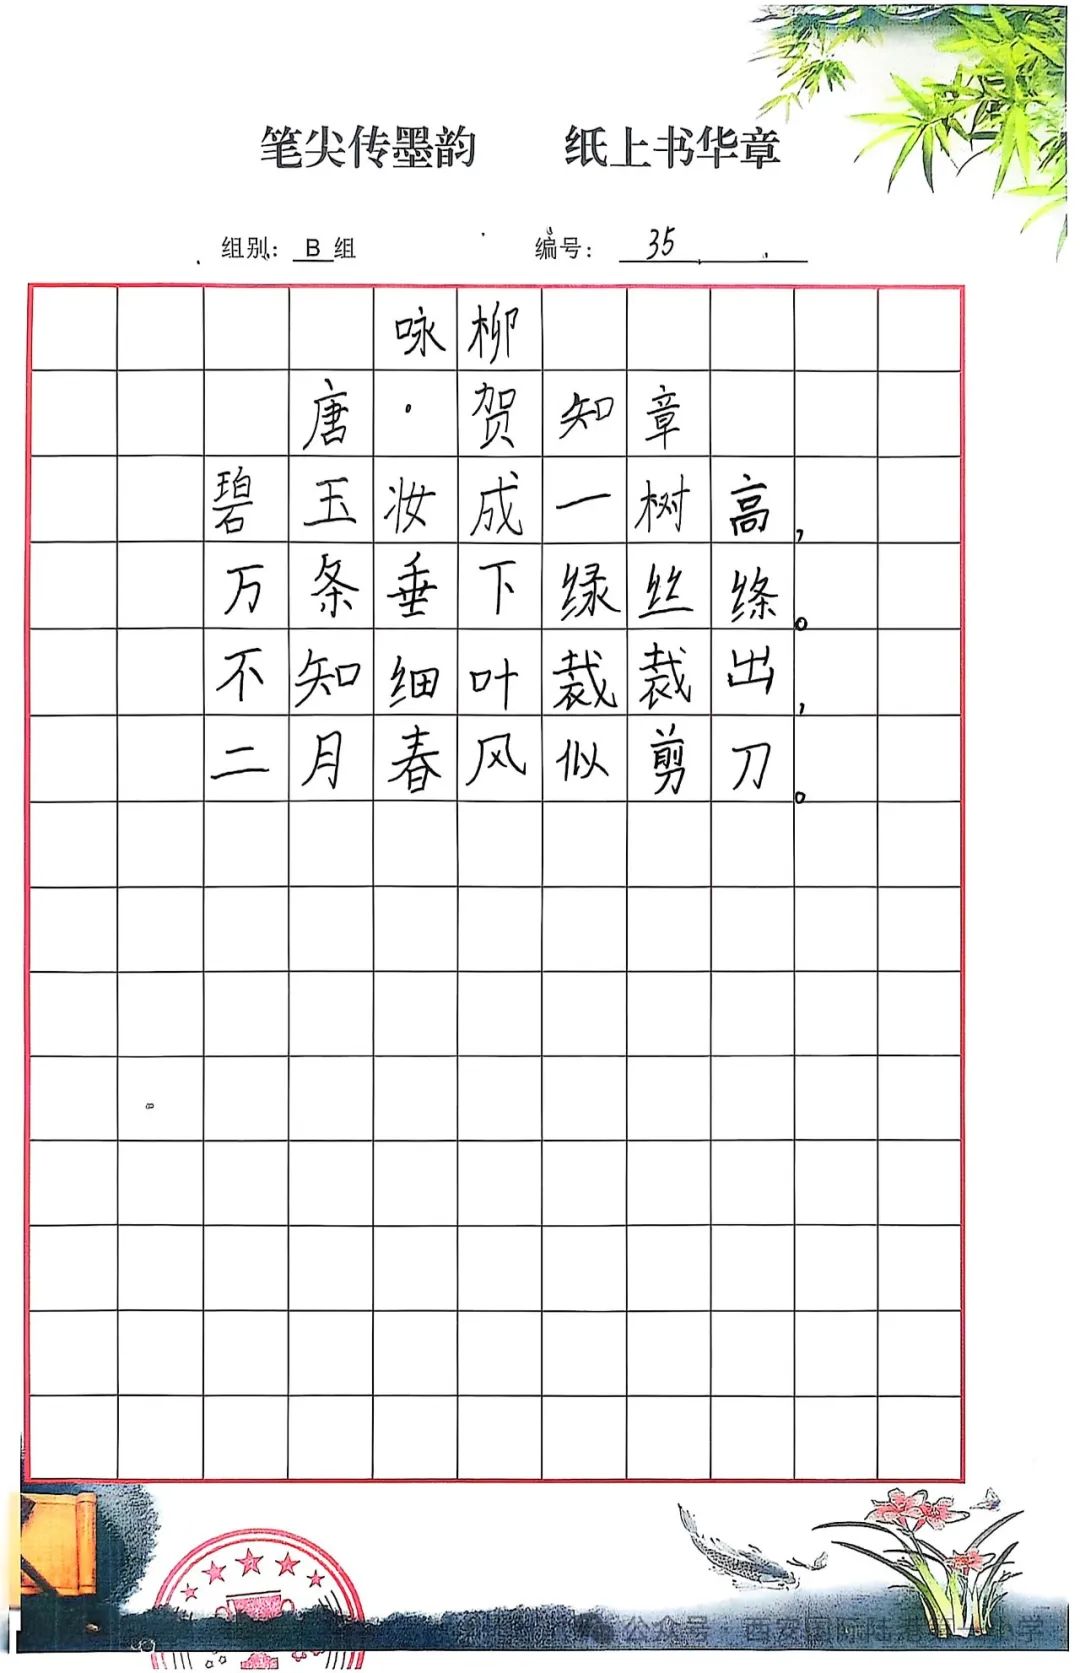 笔尖传墨韵 纸上书华章
组别: B 组 编号: 35
咏柳
唐·贺知章
碧玉妆成一树高,
万条垂下绿丝绦。
不知细叶裁裁出,
二月春风似剪刀。
公众号 西安国际陆港第一小学